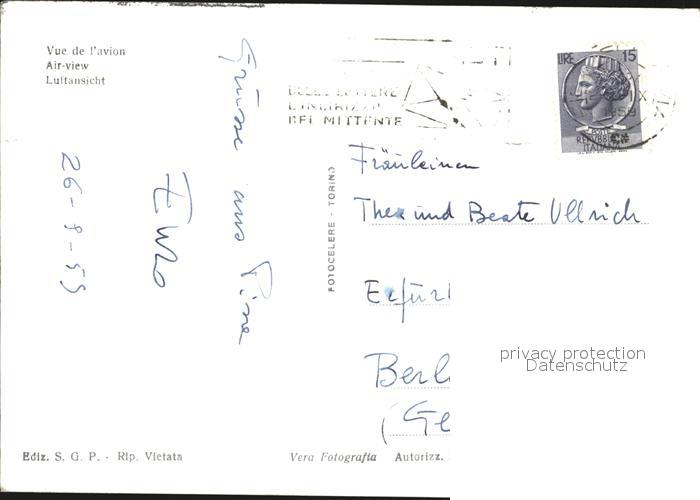 Vue de l'avion
Air-view
Luftansicht
Grüsse aus Pisa
26-9-59
FOTOCELERE - TORINO
DELLE LETTERE
L'INDIRIZZO
DEL MITTENTE
LIRE 15
POSTE
REPUBBLICA
ITALIANA
Fräuleinen
Thea und Beate Ullrich
Erfur
Berl
(Ge
privacy protection
Datenschutz
Ediz. S. G. P. - Rip. Vietata
Vera Fotografia Autorizz.